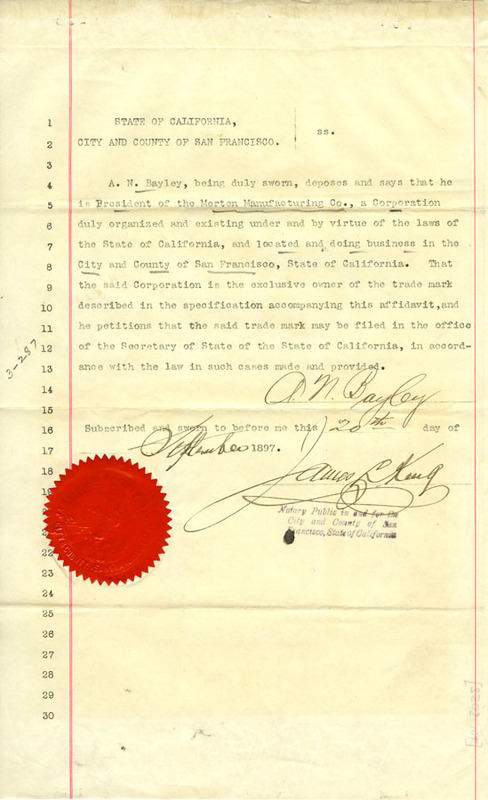 1 STATE OF CALIFORNIA,
ss.
2 CITY AND COUNTY OF SAN FRANCISCO.
3
4 A. N. Bayley, being duly sworn, deposes and says that he
5 is President of the Morton Manufacturing Co., a Corporation
6 duly organized and existing under and by virtue of the laws of
7 the State of California, and located and doing business in the
8 City and County of San Francisco, State of California. That
9 the said Corporation is the exclusive owner of the trade mark
10 described in the specification accompanying this affidavit,and
11 he petitions that the said trade mark may be filed in the office
12 of the Secretary of State of the State of California, in accord-
13 ance with the law in such cases made and provided.
14 A. N. Bayley
15
16 Subscribed and sworn to before me this 20th day of
17 September 1897.
18 James L. King
Notary Public in and for the
City and County of San
Francisco, State of California
22
23
24
25
26
27
28
29
30
3-287